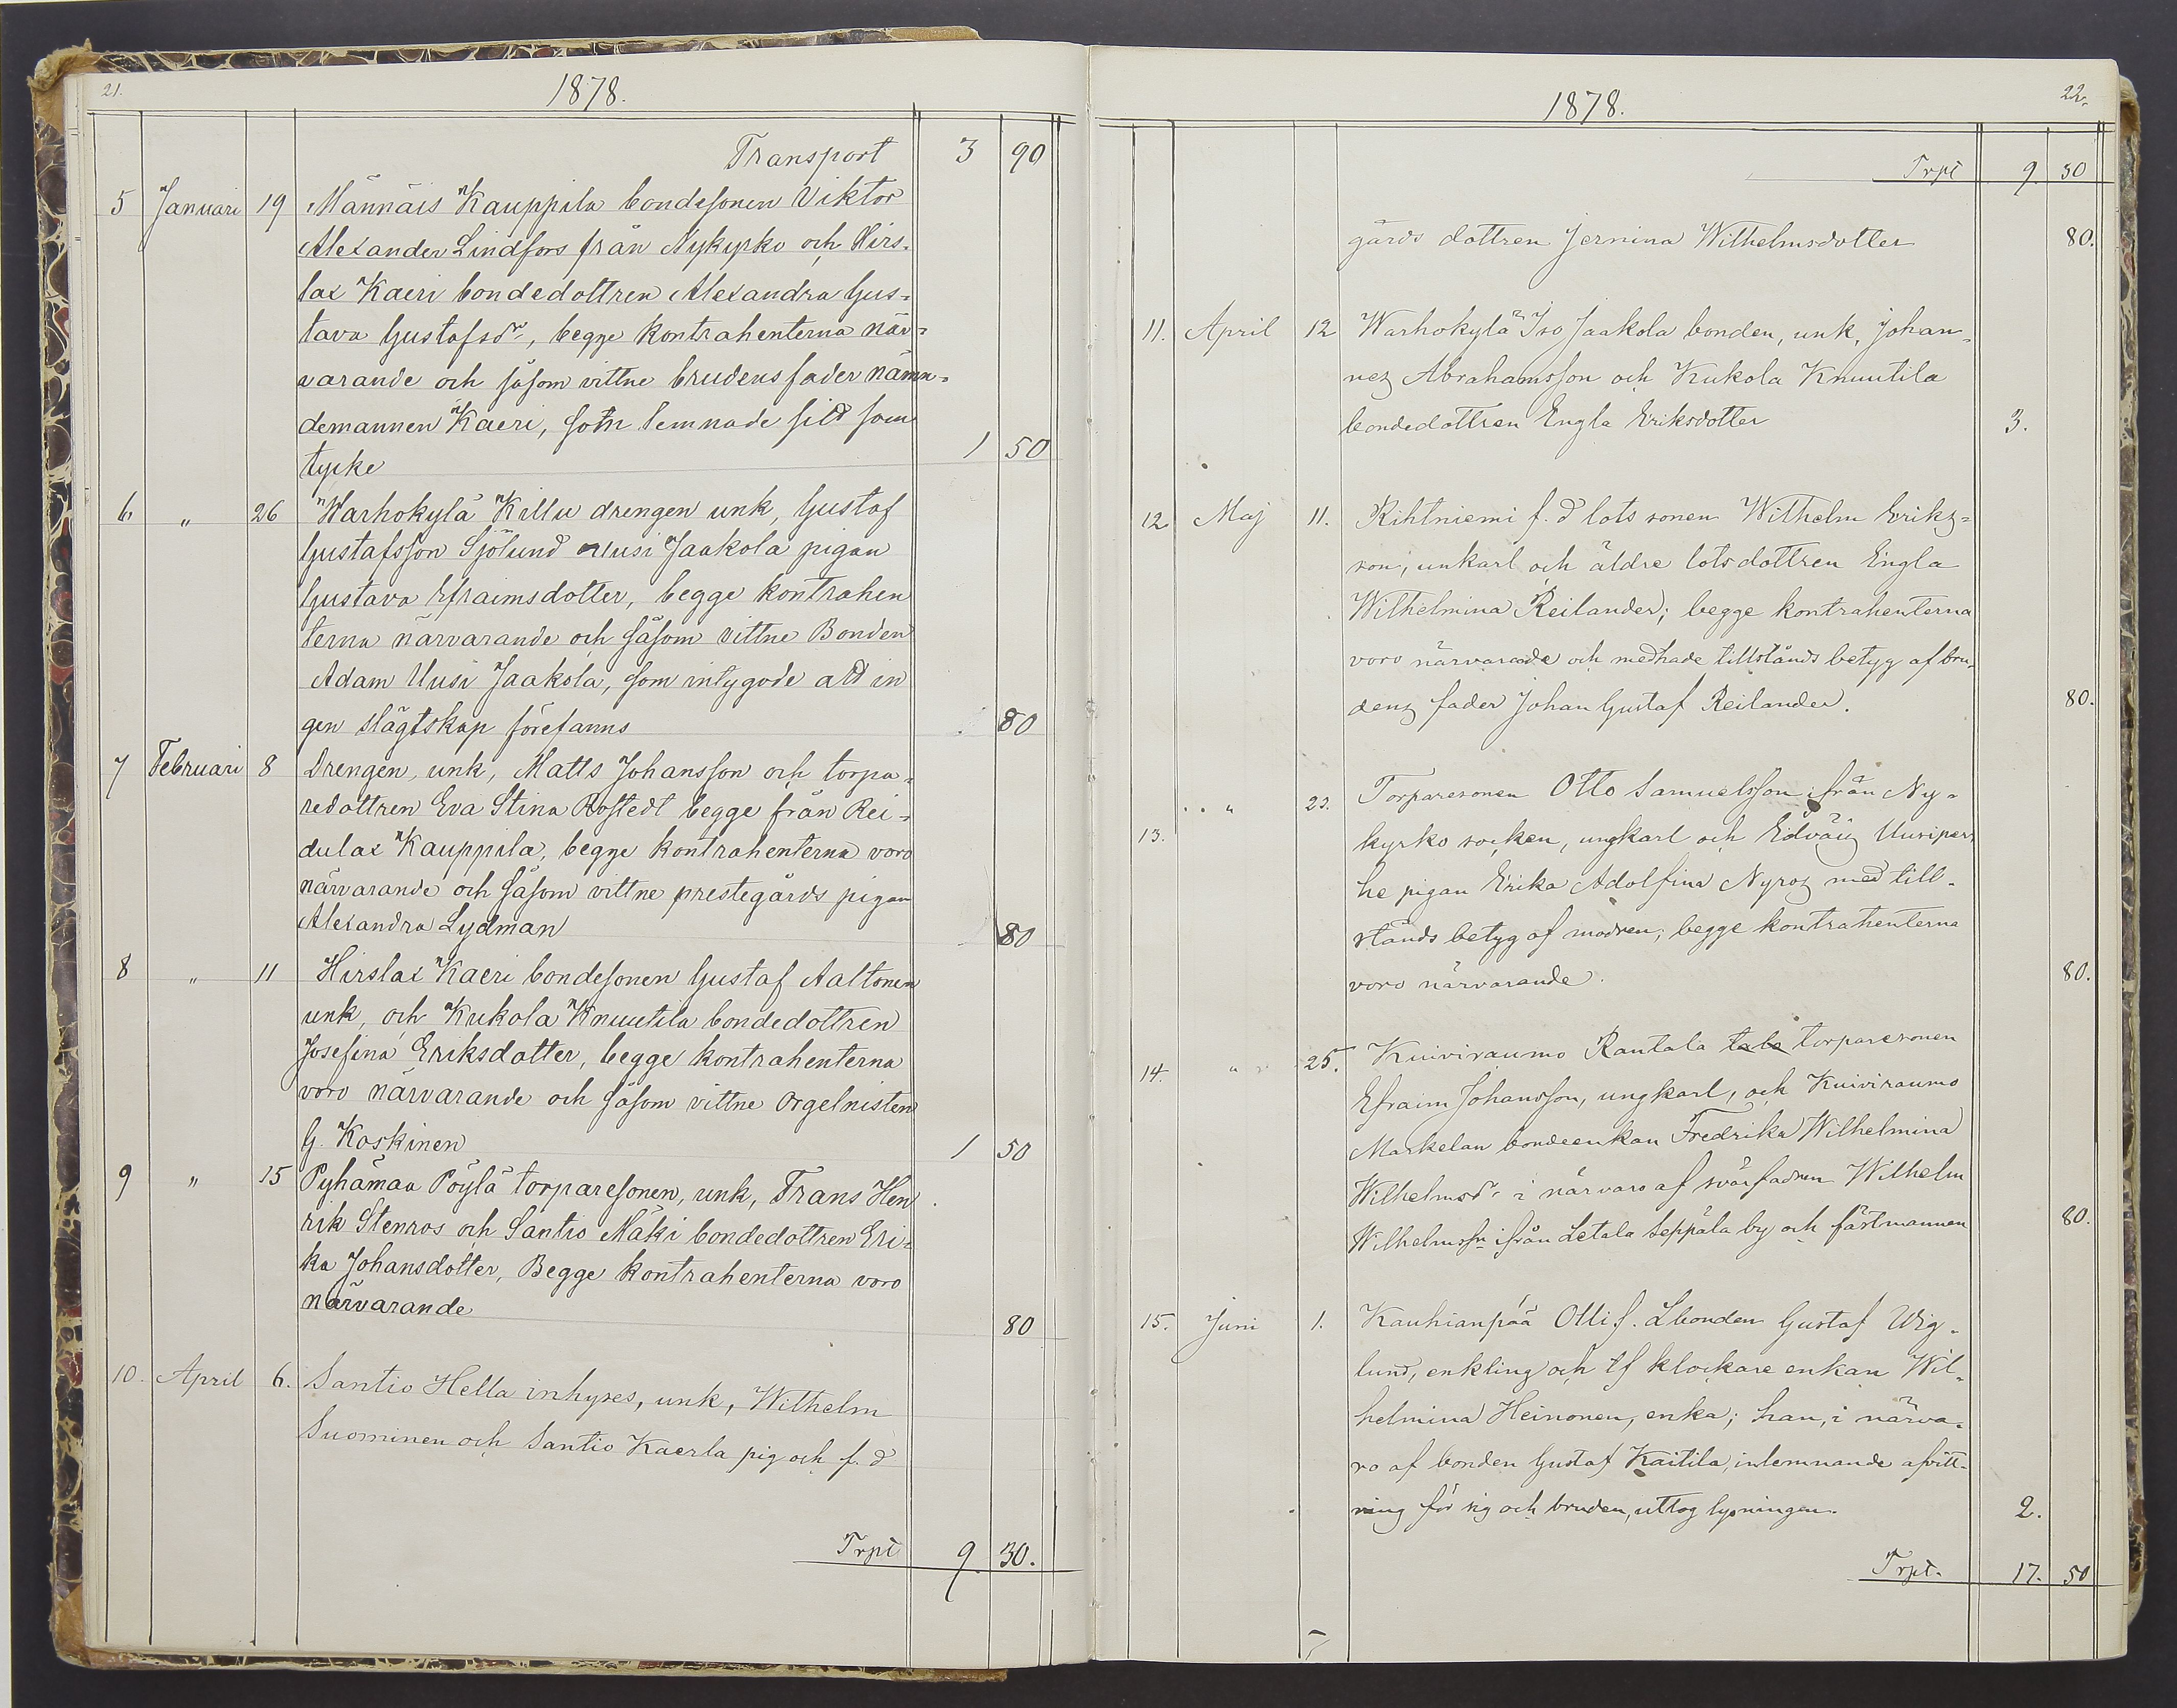 21.
1878.
Transport 3 90
5 Januari 19 Männäis Kauppila bondesonen Viktor
Alexander Lindfors från Nykyrko och Hirs-
lax Kaeri bondedottren Alexandra Gus-
tava Gustafsdr, begge kontrahenterna när-
varande och såsom vittne brudens fader nämn-
demannen Kaeri, som lemnade sitt sam
tycke 1 50
6, " 26 Warhokylä Killu drengen unk, Gustaf
Gustafsson Sjölund Uusi Jaakola pigan
Gustava Efraimsdotter, begge kontrahen
terna närvarande och såsom vittne Bonden
Adam Uusi Jaakola, som intygade att in
gen slägtskap förefanns 80
7 Februari 8 Drengen, unk, Matts Johansson och torpa-
redottren Eva Stina Rostedt begge från Rei-
dulax Kauppila, begge kontrahenterna voro
närvarande och såsom vittne prestegårds pigan
Alexandra Lydman 80
8 " 11 Hirslax Kaeri bondesonen Gustaf Aaltonen
unk, och Kukola Knuutila bondedottren
Josefina Eriksdotter, begge kontrahenterna
voro närvarande och såsom vittne Orgelnisten
G. Koskinen 1 50
9 " 15 Pyhämaa Pöylä torparesonen, unk, Frans Hen
rik Stenros och Santio Mäki bondedottren Eri-
ka Johansdotter, Begge kontrahenterna voro
närvarande 80
10. April 6. Santio Hella inhyses, unk, Wilhelm
Suominen och Santio Kaerla pig och f. d
Trpt 9. 30.
22.
1878.
Trpt 9. 30
gårds dottren Jernina Wilhelmsdotter 80.
11. April 12 Warhokylä Iso Jaakola bonden, unk, Johan-
nes Abrahamsson och Kukola Knuutila
bondedottren Engla Eriksdotter 3.
12 Maj 11. Rihtniemi f. d lots sonen Wilhelm Eriks-
son, unkarl och äldre lotsdottren Engla
Wilhelmina Reilander; begge kontrahenterna
voro närvarande och medhade tillstånds betyg af bru-
dens fader Johan Gustaf Reilander. 80.
13. " 23. Torparesonen Otto Samuelsson från Ny-
kyrko socken, ungkarl och Edväis Uusiper-
he pigan Erika Adolfina Nyros med till-
stånds betyg af modren, begge kontrahenterna
voro närvarande. 80.
14. " 25. Kuiviraumo Rantala tala torparesonen
Efraim Johansson, ungkarl, och Kuiviraumo
Markelan bondeenkan Fredrika Wilhelmina
Wilhelmsdr i närvaro af svärfadren Wilhelm
Wilhelmssn ifrån Letala Seppäla by och fästmannen 80.
15. Juni 1. Kauhianpää Olli f. Lbonden Gustaf Wig-
lund, enkling och tf klockare enkan Wil-
helmina Heinonen, enka; han, i närva-
ro af bonden Gustaf Kaitila, inlemnande afvitt-
ring för sig och bruden, uttog lysningen. 2.
Trpt. 17. 50